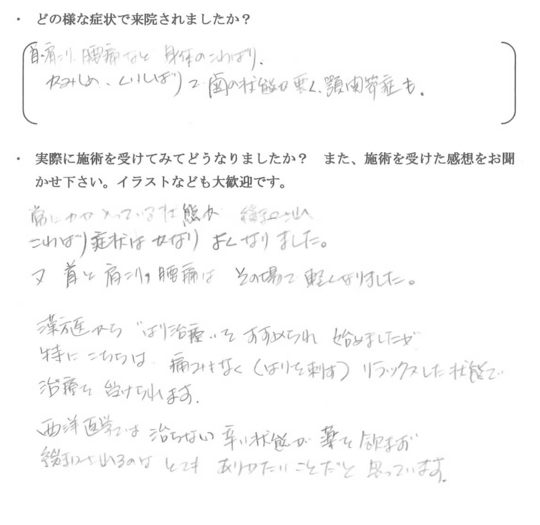 ・ どの様な症状で来院されましたか？
首・肩こり、腰痛など 身体のこわばり、
かみしめ、くいしばりで 歯の状態が悪く、顎関節症も。
・ 実際に施術を受けてみてどうなりましたか？　また、施術を受けた感想をお聞
かせ下さい。イラストなども大歓迎です。
常に 状態が 緩和され
こわばり症状は かなり よくなりました。
又 首と 肩こり、腰痛は その場で 軽くなりました。
漢方医から "はり治療"を すすめられ 始めましたが
特に こちらは 痛みなく（はりを刺す）リラックスした状態で
治療を 受けられます。
西洋医学では 治らない 辛い状態が 薬を 飲まず
緩和されるのは とても ありがたいことだと 思っています。